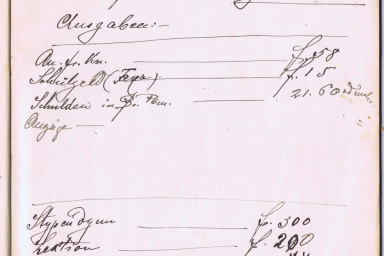 Ausgaben:-
An. fr. Kn. — f. 58
Schulgeld (Taxa) — f. 15
Schulden in Br. Pom. — 21. 60
Anzüge —
Stypendyum — fr. 300
Lektion — f. 200